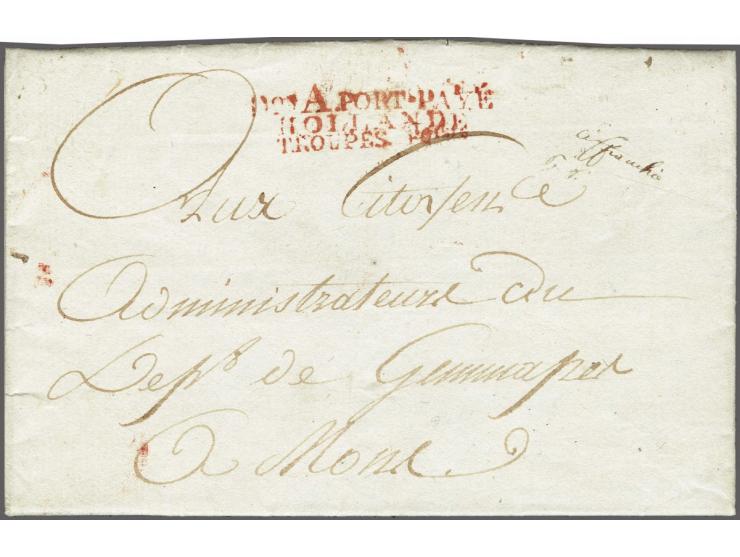 Don A PORT-PAYÉ
HOLLANDE
TROUPES
affranchie
Aux Citoyens
Administrateurs du
Dept. de Gemmapes
a Mons